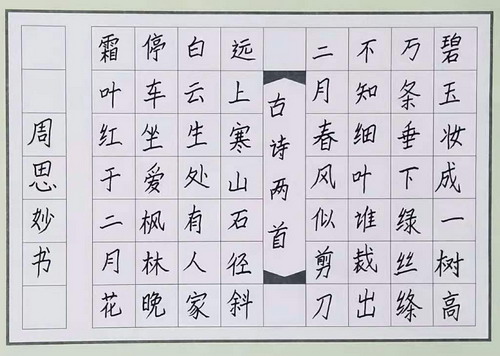 碧玉妆成一树高
万条垂下绿丝绦
不知细叶谁裁出
二月春风似剪刀
古诗两首
远上寒山石径斜
白云生处有人家
停车坐爱枫林晚
霜叶红于二月花
周思妙书